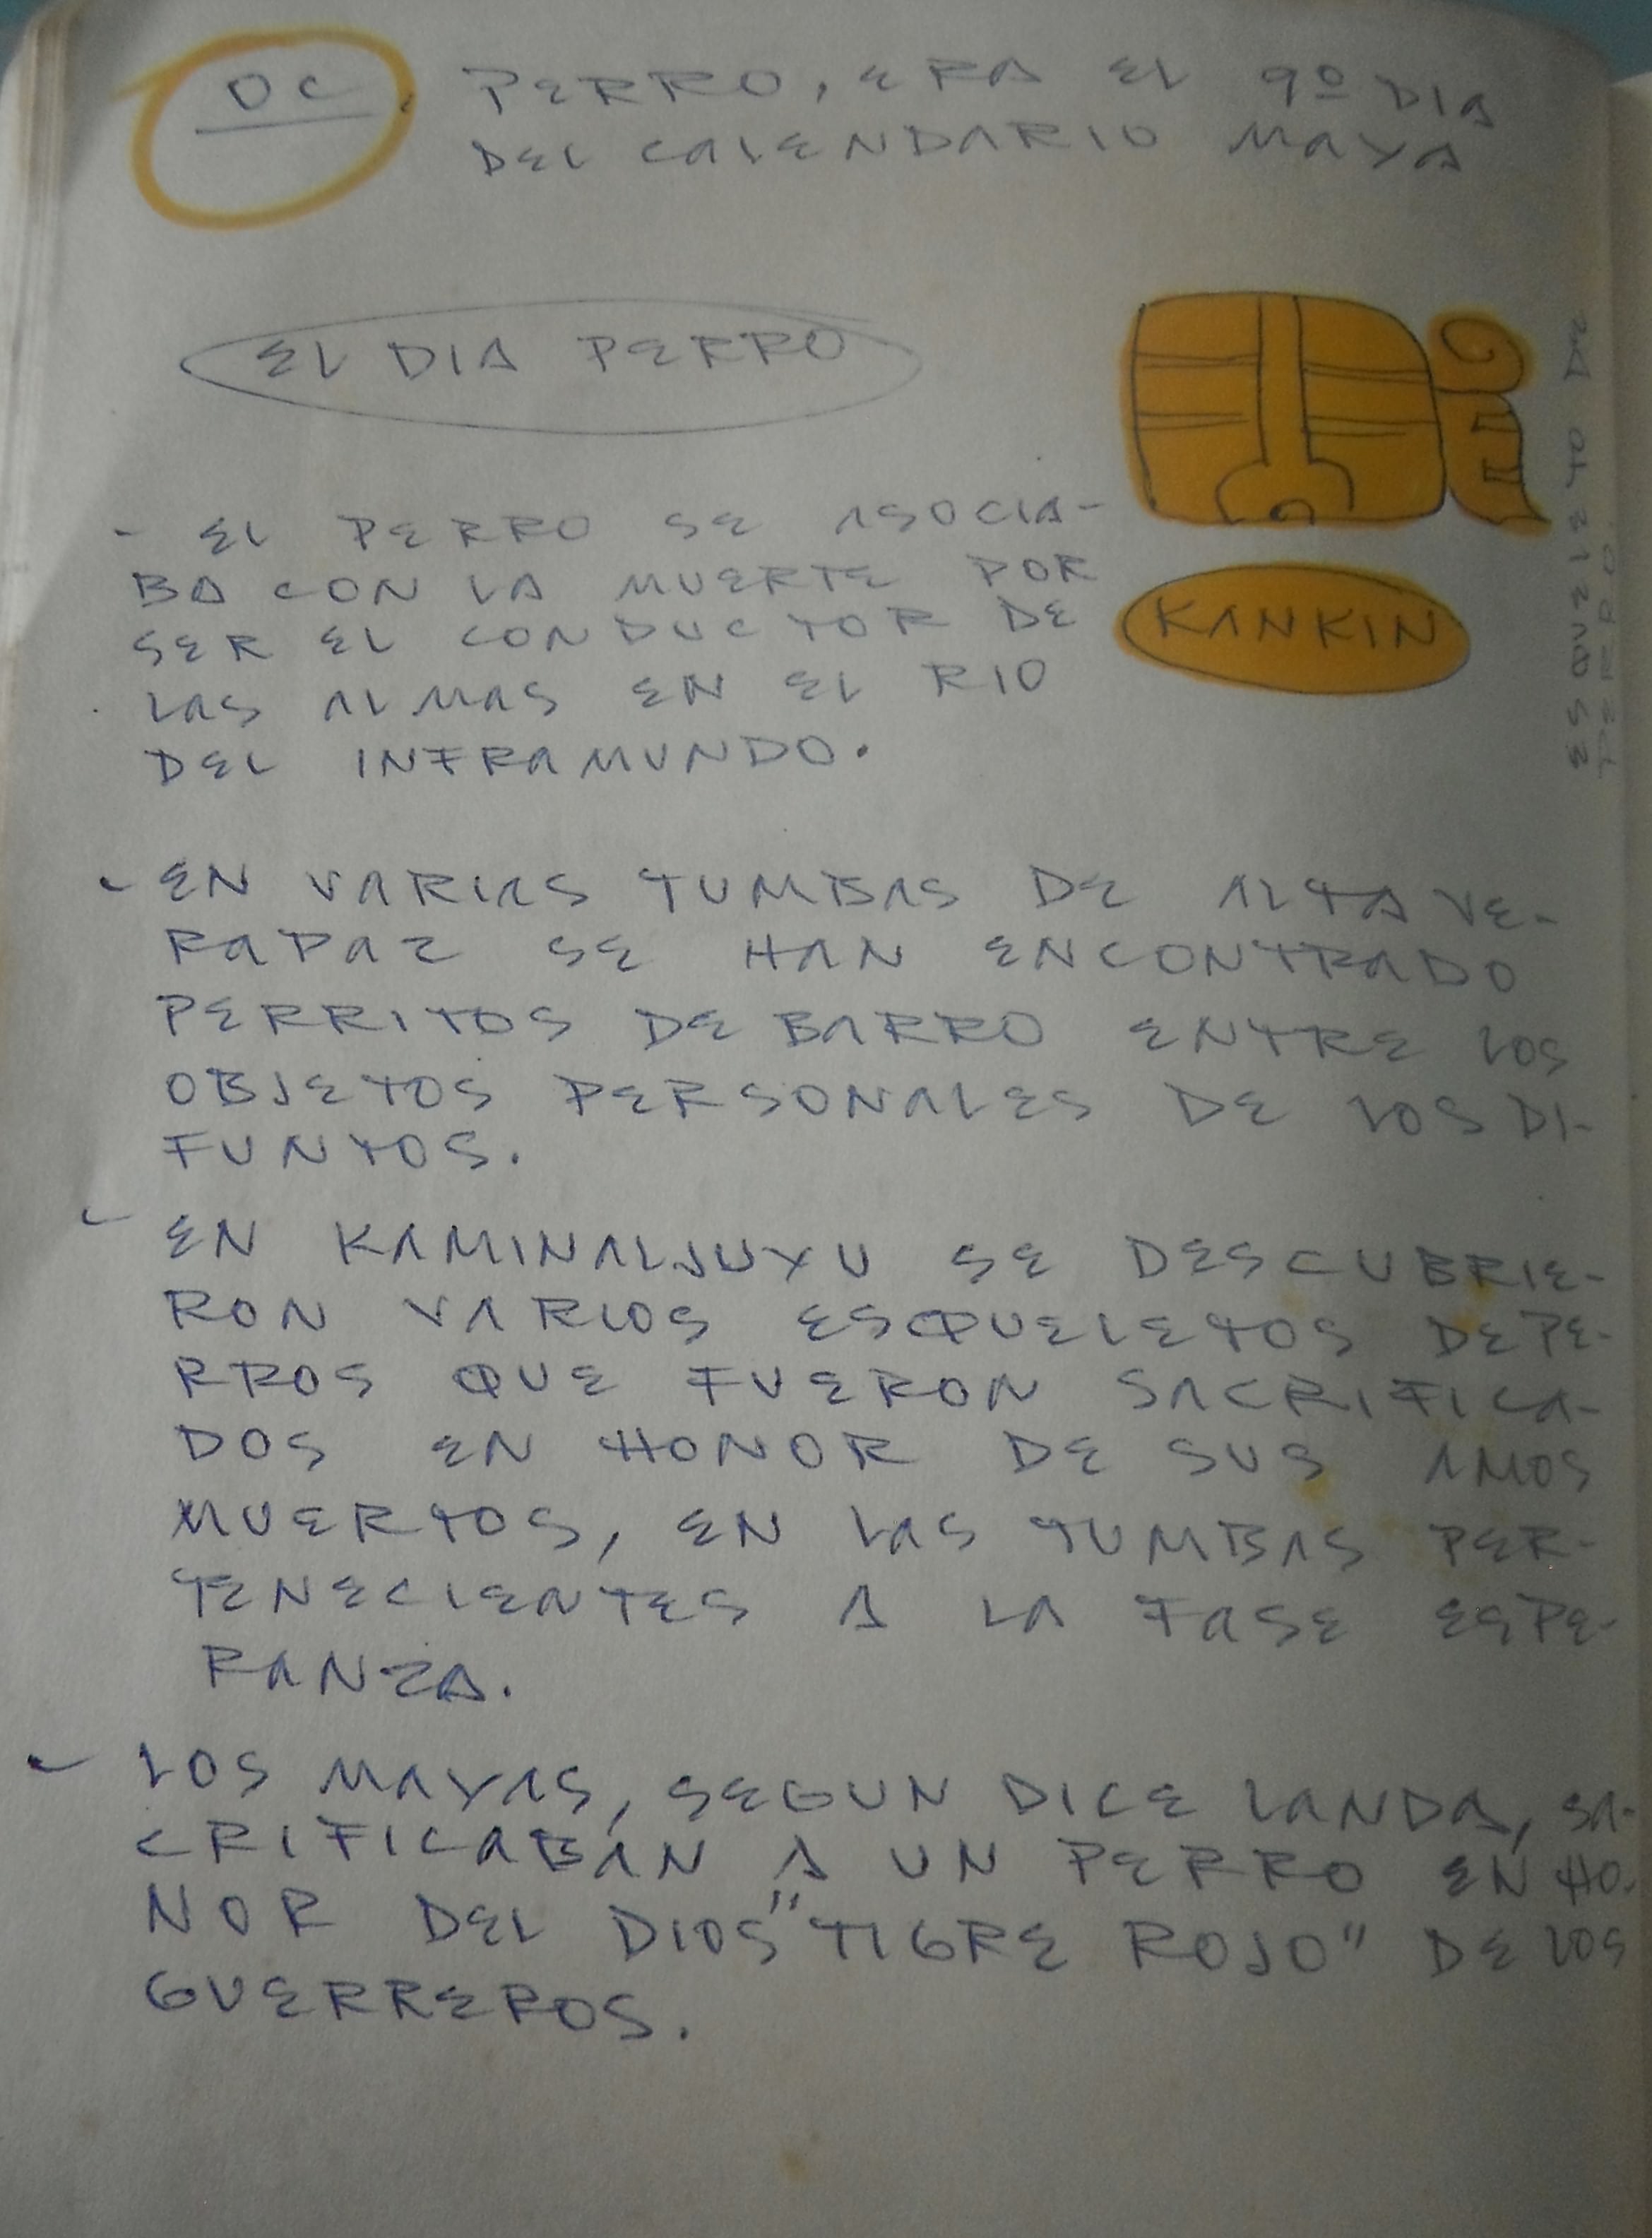 OC. PERRO, ERA EL 9º DIA
DEL CALENDARIO MAYA
EL DIA PERRO
ESQUELETO DE
PERRO.
KANKIN
- EL PERRO SE ASOCIA-
BA CON LA MUERTE POR
SER EL CONDUCTOR DE
LAS ALMAS EN EL RIO
DEL INFRAMUNDO.
- EN VARIAS TUMBAS DE ALTA VE-
RAPAZ SE HAN ENCONTRADO
PERRITOS DE BARRO ENTRE LOS
OBJETOS PERSONALES DE LOS DI-
FUNTOS.
- EN KAMINALJUYU SE DESCUBRIE-
RON VARIOS ESQUELETOS DE PE-
RROS QUE FUERON SACRIFICA-
DOS EN HONOR DE SUS AMOS
MUERTOS, EN LAS TUMBAS PER-
TENECIENTES A LA FASE ESPE-
RANZA.
- LOS MAYAS, SEGUN DICE LANDA, SA-
CRIFICABAN A UN PERRO EN HO-
NOR DEL DIOS "TIGRE ROJO" DE LOS
GUERREROS.